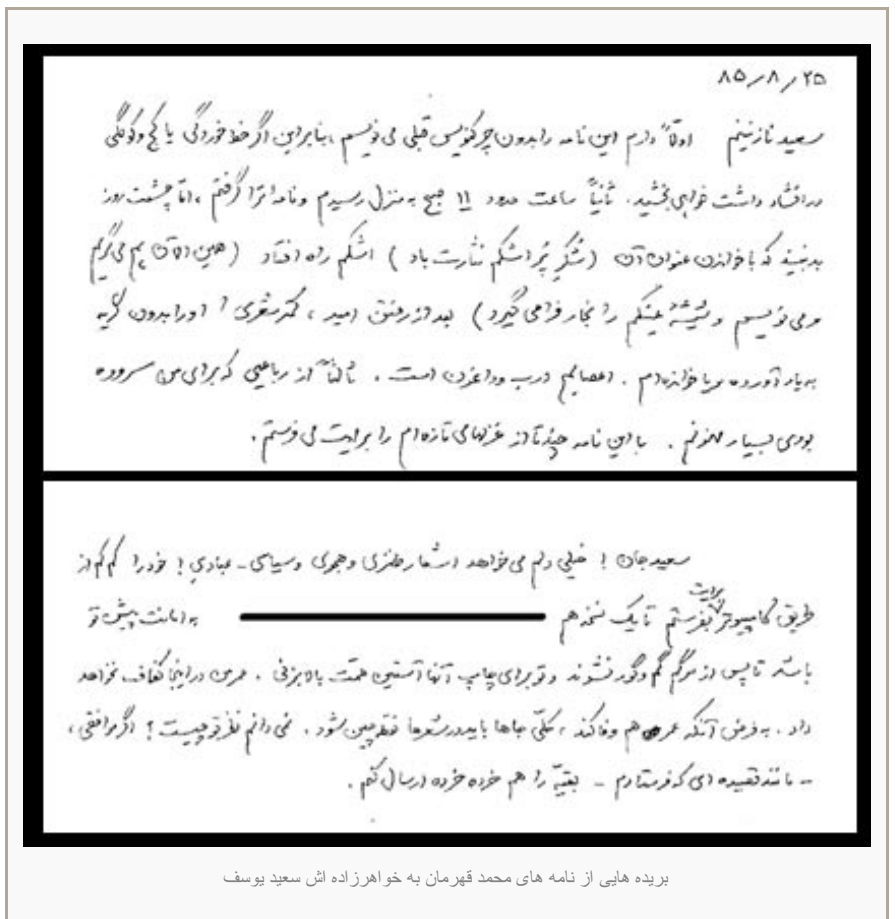 ۸۵/۸/۲۵
سعید نازنینم اولاً دارم این نامه را بدون چرکنویس قبلی می نویسم ، بنابراین اگر خط خوردگی یا کج وکولگی
درانشاء داشت خواهی بخشید. ثانیاً ساعت حدود ۱۱ صبح به منزل رسیدم ونامه اترا گرفتم ، امّا چشمت روز
بد نبیند که با خواندن عنوان آن ( شکرِ پُر اشکم نثارت باد ) اشکم راه افتاد ( همین الآن هم می گریم
ومی نویسم و شیشهٔ عینکم را بخار فرامی گیرد ) بعد از رفتن امید ، کمتر شعری از او را بدون گریه
به یاد آورده و یا خوانده ام . اعصابم درب وداغون است . ثالثاً از رباعیی که برای من سروده
بودی بسیار ممنونم . با این نامه چندتا از غزلهای تازه ام را برایت می فرستم .
سعیدجان ! خیلی دلم می خواهد اشعار طنزی وهجوی وسیاسی - عبادیِ ! خود را کم کم از
طریق کامپیوتر برایت بفرستم تا یک نسخه هم به امانت پیش تو
باشد تا پس از مرگم گم وگور نشوند و تو برای چاپ آنها آستین همّت بالا بزنی . عرض دراینجا کفاف نخواهد
داد . به فرض آنکه عمر هم وفا کند ، کلّی جاها باید در شعرها نقطه چین شود . نمی دانم نظر تو چیست ؟ اگر موافقی ،
- مانند قصیده ای که فرستادم - بقیّه را هم خرده خرده ارسال کنم .
بریده هایی از نامه های محمد قهرمان به خواهرزاده اش سعید یوسف